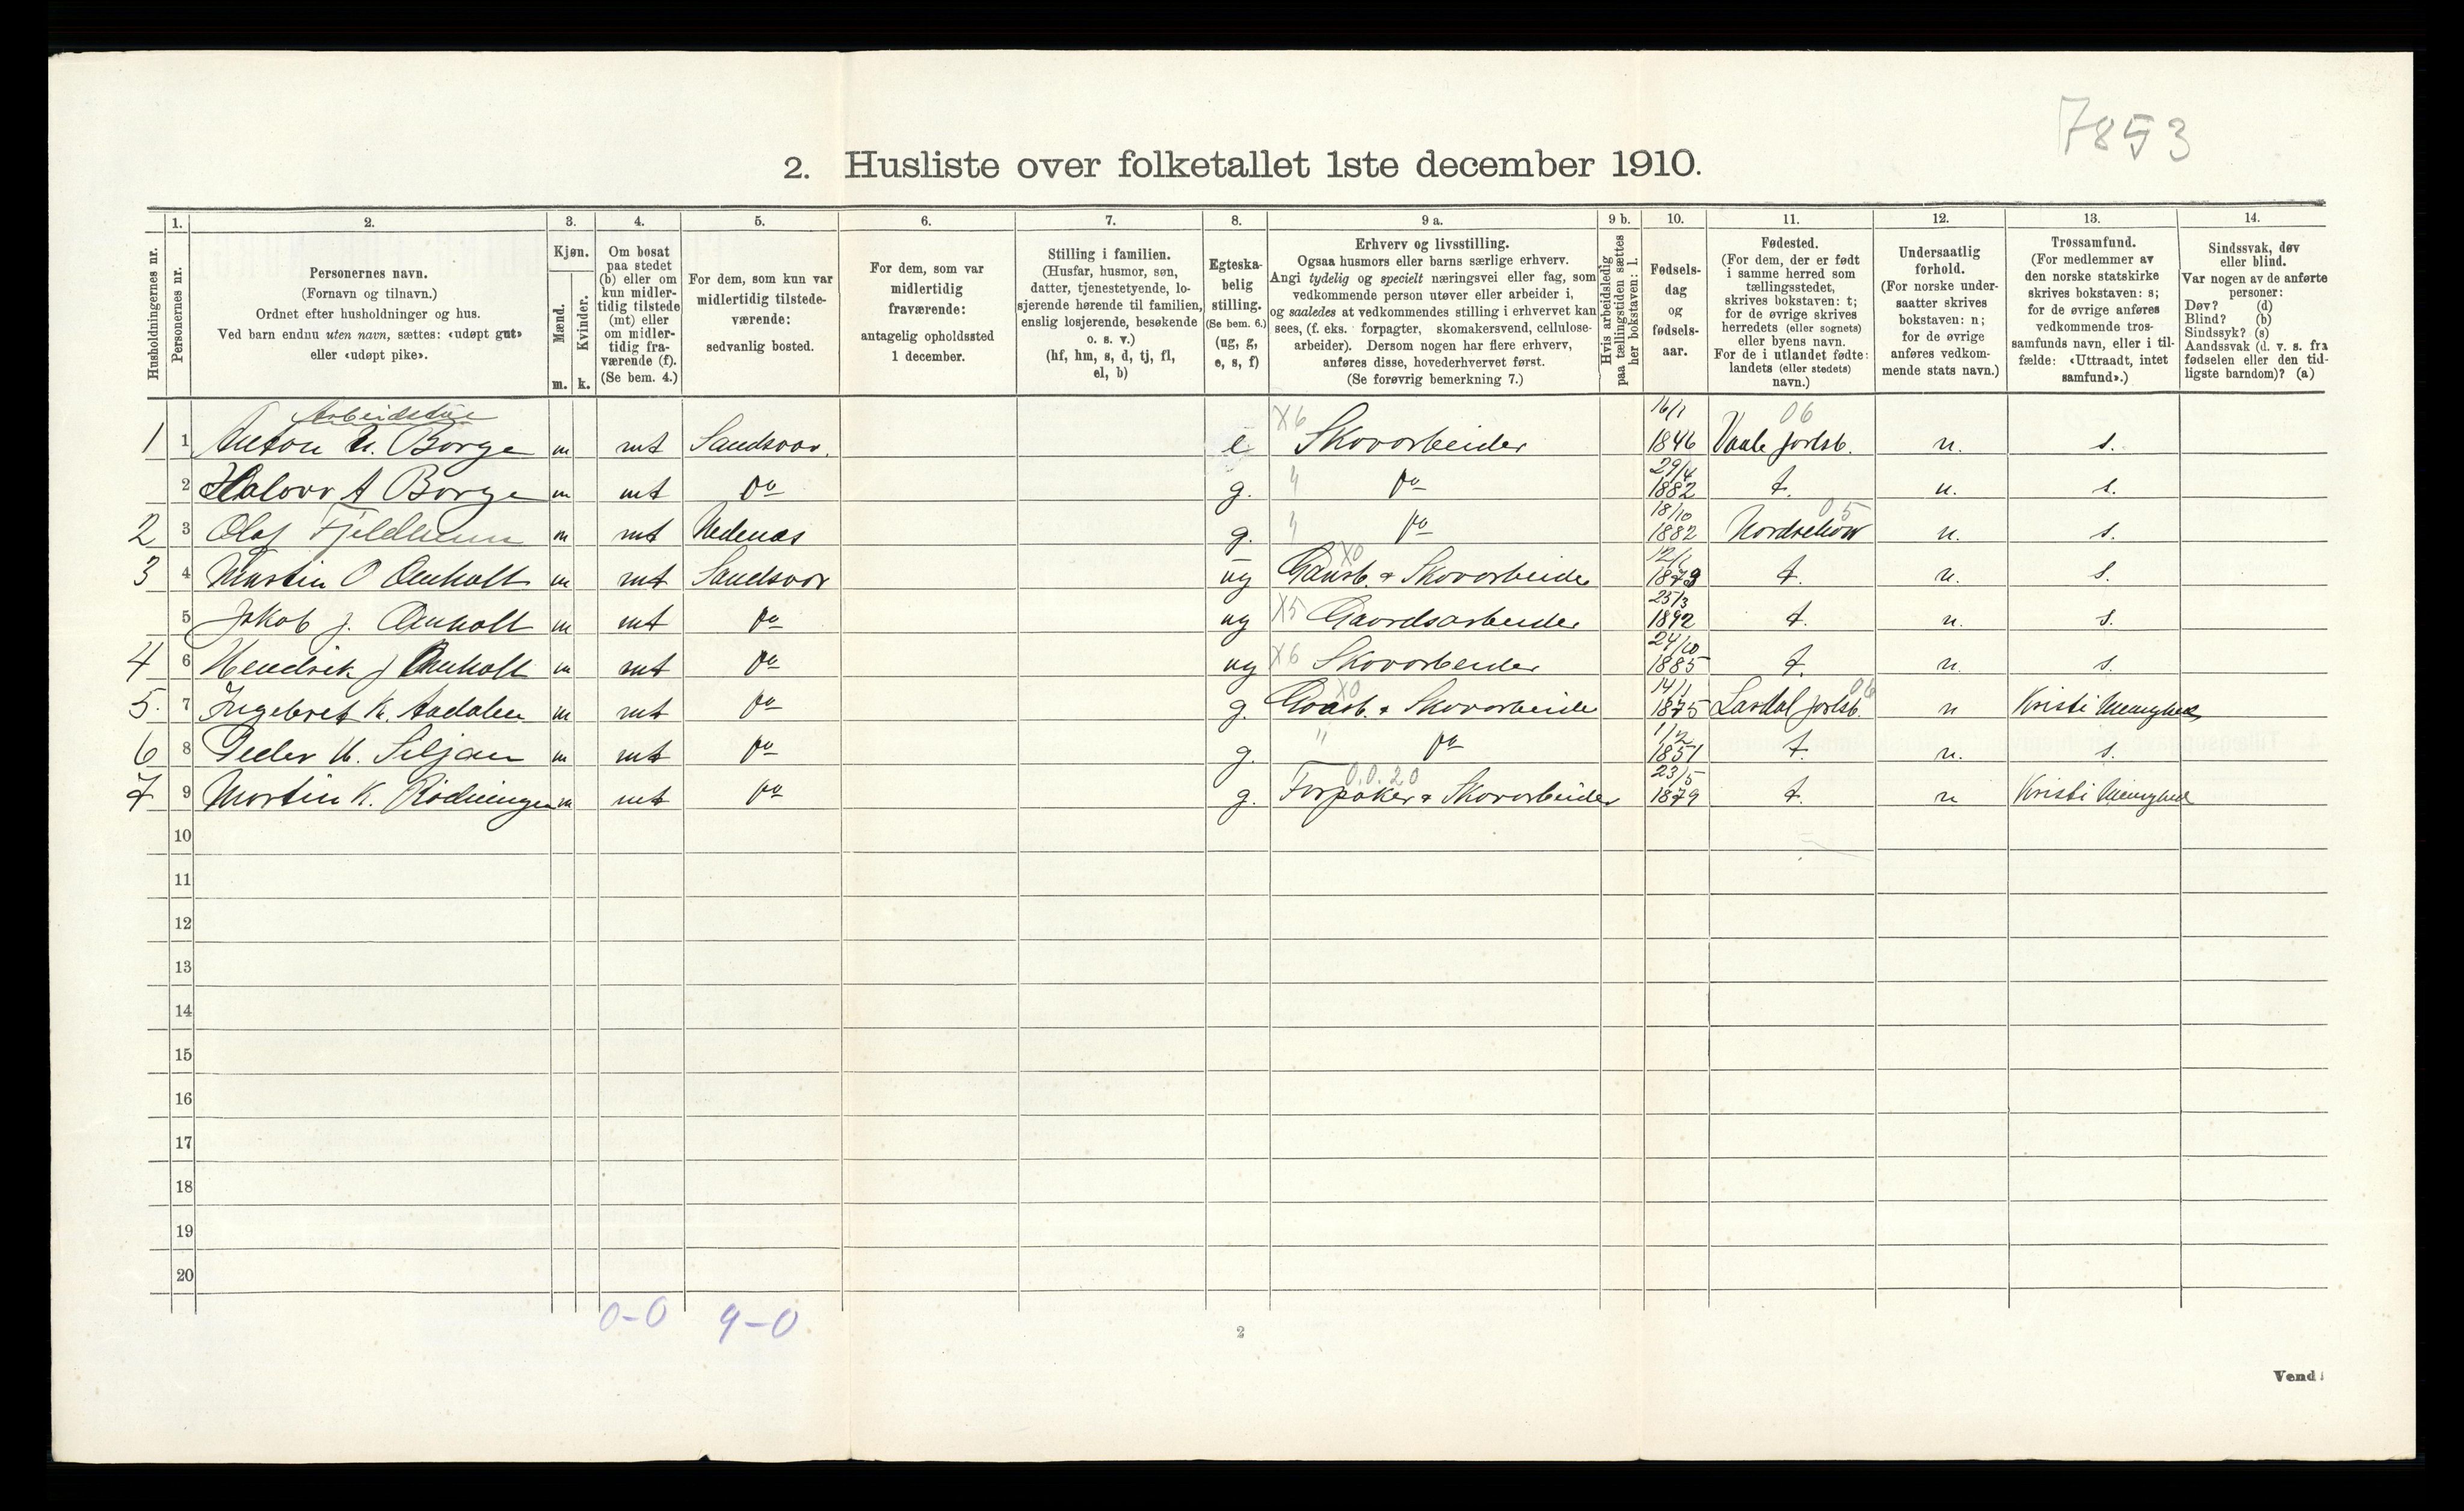 7853
2. Husliste over folketallet 1ste december 1910.
1. 2. 3. 4. 5. 6. 7. 8. 9 a. 9 b. 10. 11. 12. 13. 14.
Husholdningernes nr.
Personernes nr.
Personernes navn.
(Fornavn og tilnavn.)
Ordnet efter husholdninger og hus.
Ved barn endnu uten navn, sættes: «udøpt gut»
eller «udøpt pike».
Kjøn.
Mænd.
Kvinder.
m. k.
Om bosat
paa stedet
(b) eller om
kun midler-
tidig tilstede
(mt) eller
om midler-
tidig fra-
værende (f).
(Se bem. 4.)
For dem, som kun var
midlertidig tilstede-
værende:
sedvanlig bosted.
For dem, som var
midlertidig
fraværende:
antagelig opholdssted
1 december.
Stilling i familien.
(Husfar, husmor, søn,
datter, tjenestetyende, lo-
sjerende hørende til familien,
enslig losjerende, besøkende
o. s. v.)
(hf, hm, s, d, tj, fl,
el, b)
Egteska-
belig
stilling.
(Se bem. 6.)
(ug, g,
e, s, f)
Erhverv og livsstilling.
Ogsaa husmors eller barns særlige erhverv.
Angi tydelig og specielt næringsvei eller fag, som
vedkommende person utøver eller arbeider i,
og saaledes at vedkommendes stilling i erhvervet kan
sees, (f. eks. forpagter, skomakersvend, cellulose-
arbeider). Dersom nogen har flere erhverv,
anføres disse, hovederhvervet først.
(Se forøvrig bemerkning 7.)
Hvis arbeidsledig
paa tællingstiden sættes
her bokstaven: l.
Fødsels-
dag
og
fødsels-
aar.
Fødested.
(For dem, der er født
i samme herred som
tællingsstedet,
skrives bokstaven: t;
for de øvrige skrives
herredets (eller sognets)
eller byens navn.
For de i utlandet fødte:
landets (eller stedets)
navn.)
Undersaatlig
forhold.
(For norske under-
saatter skrives
bokstaven: n;
for de øvrige
anføres vedkom-
mende stats navn.)
Trossamfund.
(For medlemmer av
den norske statskirke
skrives bokstaven: s;
for de øvrige anføres
vedkommende tros-
samfunds navn, eller i til-
fælde: «Uttraadt, intet
samfund».)
Sindssvak, døv
eller blind.
Var nogen av de anførte
personer:
Døv? (d)
Blind? (b)
Sindssyk? (s)
Aandssvak (d. v. s. fra
fødselen eller den tid-
ligste barndom)? (a)
Arbeidstue
X6 16/1 06
1 1 Anton U. Borge m mt Sandsvær. e Skovarbeider 1846 Vaale Jarlsb. n. s.
2 Halvor A Borge m mt Do g. " Do 29/4 1882 t. n. s.
2 3 Olaf Fjeldheim m mt Nedenæs g. " Do 18/10 1882 05 n. s.
3 4 Martin O Omholt m mt Sandsvær ug X0 Gaarb. & Skovarbeider 12/1 1879 t. n. s.
5 Jakob J. Omholt m mt Do ug X5 Gaardsarbeider 25/3 1892 t. n. s.
4 6 Hendrik J Omholt m mt Do ug X6 Skovarbeider 24/10 1885 t. n. s.
5. 7 Ingebret K. Aadalen m mt Do g. X0 Gaarb. & Skovarbeide 14/1 1875 Lardal Jarlsb. 06 n Kristi Menighed
6 8 Peder H. Siljan m mt Do g. " Do 1/2 1851 t. n. s.
7 9 Martin K. Rødningen m mt Do g. 0.0.20 Forpakter & Skovarbeider 23/5 1879 t. n Kristi Menighed
10
11
12
13
14
15
16
17
18
19
20
0-0 9-0
2
Vend!